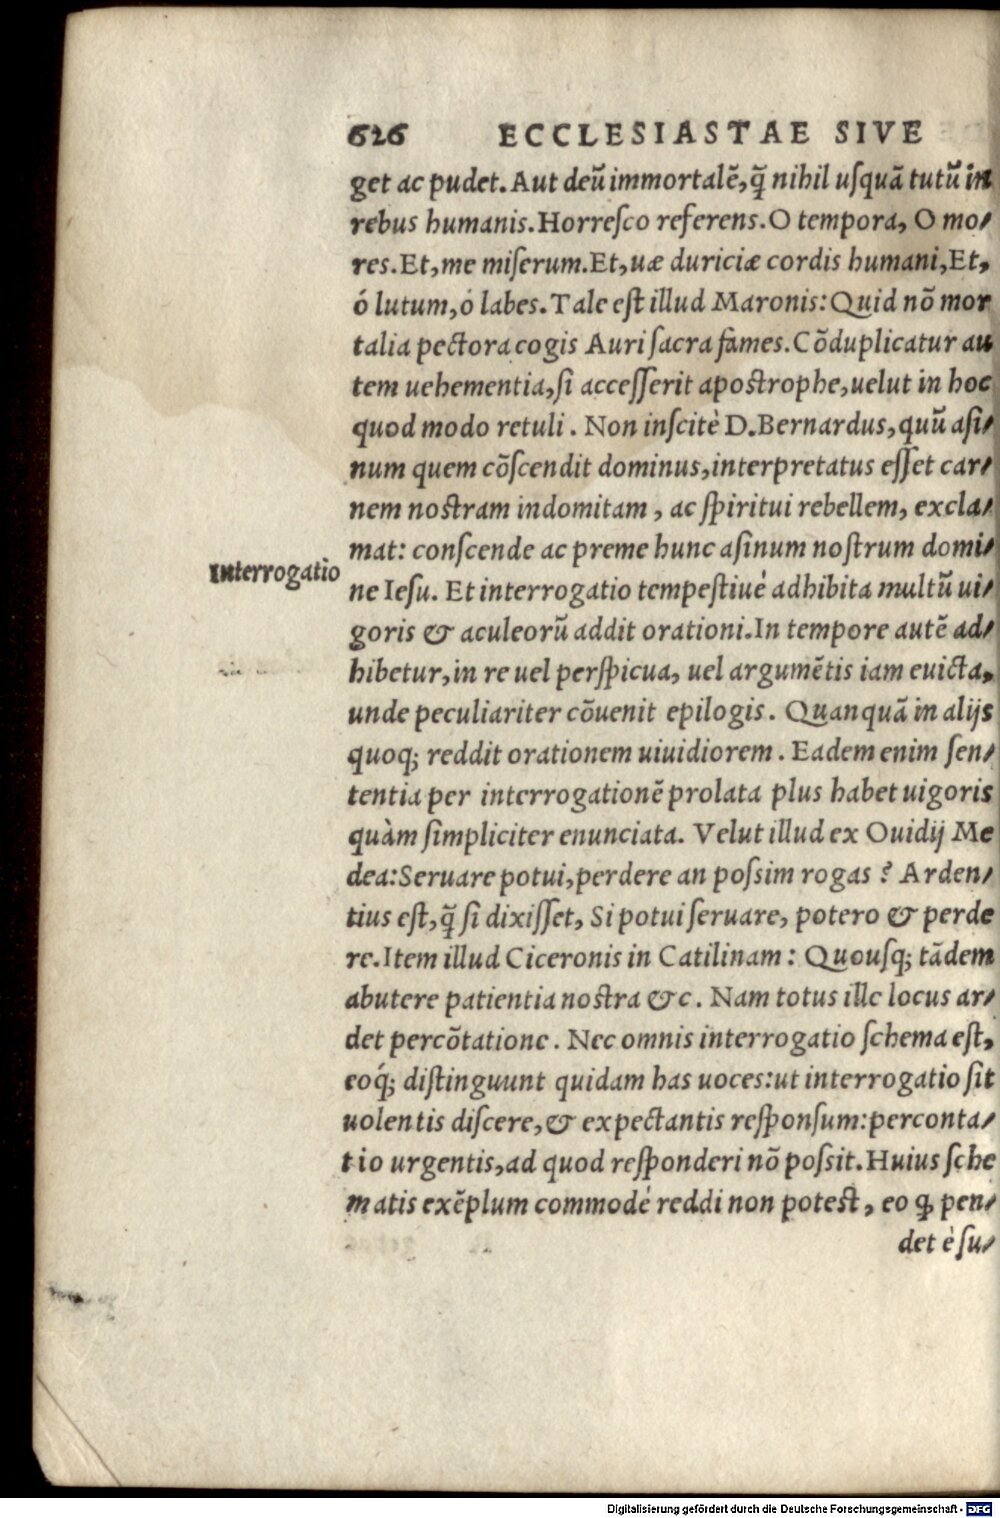 626 ECCLESIASTAE SIVE
get ac pudet. Aut deū immortalē, q̃ nihil uſquā tutū in
rebus humanis. Horreſco referens. O tempora, O mo⸗
res. Et, me miſerum. Et, uæ duriciæ cordis humani, Et,
ó lutum, ó labes. Tale eſt illud Maronis: Quid nō mor
talia pectora cogis Auri ſacra fames. Cōduplicatur au
tem uehementia, ſi acceſſerit apoſtrophe, uelut in hoc
quod modo retuli. Non inſcitè D. Bernardus, quū aſi⸗
num quem cōſcendit dominus, interpretatus eſſet car⸗
nem noſtram indomitam, ac ſpiritui rebellem, excla⸗
mat: conſcende ac preme hunc aſinum noſtrum domi⸗
Interrogatio
ne Ieſu. Et interrogatio tempeſtiuè adhibita multū ui⸗
goris & aculeorū addit orationi. In tempore autē ad⸗
hibetur, in re uel perſpicua, uel argumētis iam euicta,
unde peculiariter cōuenit epilogis. Quanquā in alijs
quoq; reddit orationem uiuidiorem. Eadem enim ſen⸗
tentia per interrogationē prolata plus habet uigoris
quàm ſimpliciter enunciata. Velut illud ex Ouidij Me
dea: Seruare potui, perdere an poſsim rogas? Arden⸗
tius eſt, q̃ ſi dixiſſet, Si potui ſeruare, potero & perde
re. Item illud Ciceronis in Catilinam: Quouſq; tādem
abutere patientia noſtra &c. Nam totus ille locus ar⸗
det percōtatione. Nec omnis interrogatio ſchema eſt,
eoq́; diſtinguunt quidam has uoces: ut interrogatio ſit
uolentis diſcere, & expectantis reſponſum: perconta⸗
tio urgentis, ad quod reſponderi nō poſsit. Huius ſche
matis exēplum commodè reddi non poteſt, eo ꝙ pen⸗
det è ſu⸗
Digitalisierung gefördert durch die Deutsche Forschungsgemeinschaft - DFG